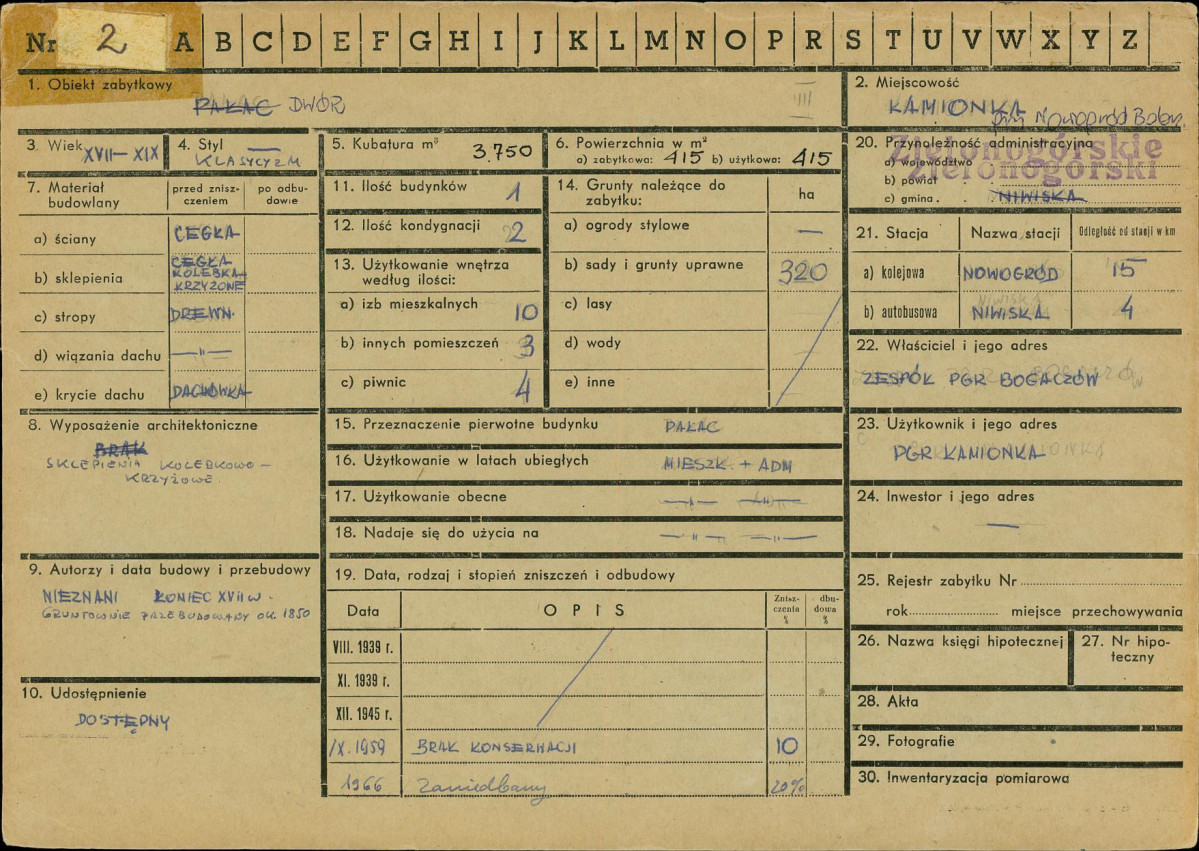 Nr 2 A B C D E F G H I J K L M N O P R S T U V W X Y Z
1. Obiekt zabytkowy
PAŁAC DWÓR
2. Miejscowość
KAMIONKA
gm. Nowogród Bobrz.
3. Wiek
XVII–XIX
4. Styl —
KLASYCYZM
5. Kubatura m³
3.750
6. Powierzchnia w m²
a) zabytkowa: 415 b) użytkowa: 415
7. Materiał budowlany
przed zniszczeniem
po odbudowie
a) ściany CEGŁA
b) sklepienia CEGŁA
KOLEBKA
KRZYŻONE
c) stropy DREWN.
d) wiązania dachu —"—
e) krycie dachu DACHÓWKA
8. Wyposażenie architektoniczne
BRAK
SKLEPIENIA KOLEBKOWO –
KRZYŻOWE.
9. Autorzy i data budowy i przebudowy
NIEZNANI KONIEC XVII W.
GRUNTOWNIE PRZEBUDOWANY OK. 1850
10. Udostępnienie
DOSTĘPNY
11. Ilość budynków 1
12. Ilość kondygnacji 2
13. Użytkowanie wnętrza
według ilości:
a) izb mieszkalnych 10
b) innych pomieszczeń 3
c) piwnic 4
14. Grunty należące do
zabytku:
ha
a) ogrody stylowe —
b) sady i grunty uprawne 320
c) lasy
d) wody
e) inne
15. Przeznaczenie pierwotne budynku PAŁAC
16. Użytkowanie w latach ubiegłych MIESZK. + ADM
17. Użytkowanie obecne —"— —"—
18. Nadaje się do użycia na —"— —"—
19. Data, rodzaj i stopień zniszczeń i odbudowy
Data OPIS Zniszczenia % dbudowa %
VIII. 1939 r.
XI. 1939 r.
XII. 1945 r.
IX. 1959 BRAK KONSERWACJI 10
1966 Zaniedbany 20%
20. Przynoleżność administracyjna
a) województwo Zielonogórskie
b) powiat Zielonogórski
c) gmina . NIWISKA
21. Stacja Nazwa stacji Odległość od stacji w km
a) kolejowa NOWOGRÓD 15
b) autobusowa NIWISKA 4
22. Właściciel i jego adres
ZESPÓŁ PGR BOGACZÓW
23. Użytkownik i jego adres
PGR KAMIONKA
24. Inwestor i jego adres
—
25. Rejestr zabytku Nr
rok miejsce przechowywania
26. Nazwa księgi hipotecznej
27. Nr hipoteczny
28. Akta
29. Fotografie
30. Inwentaryzacja pomiarowa